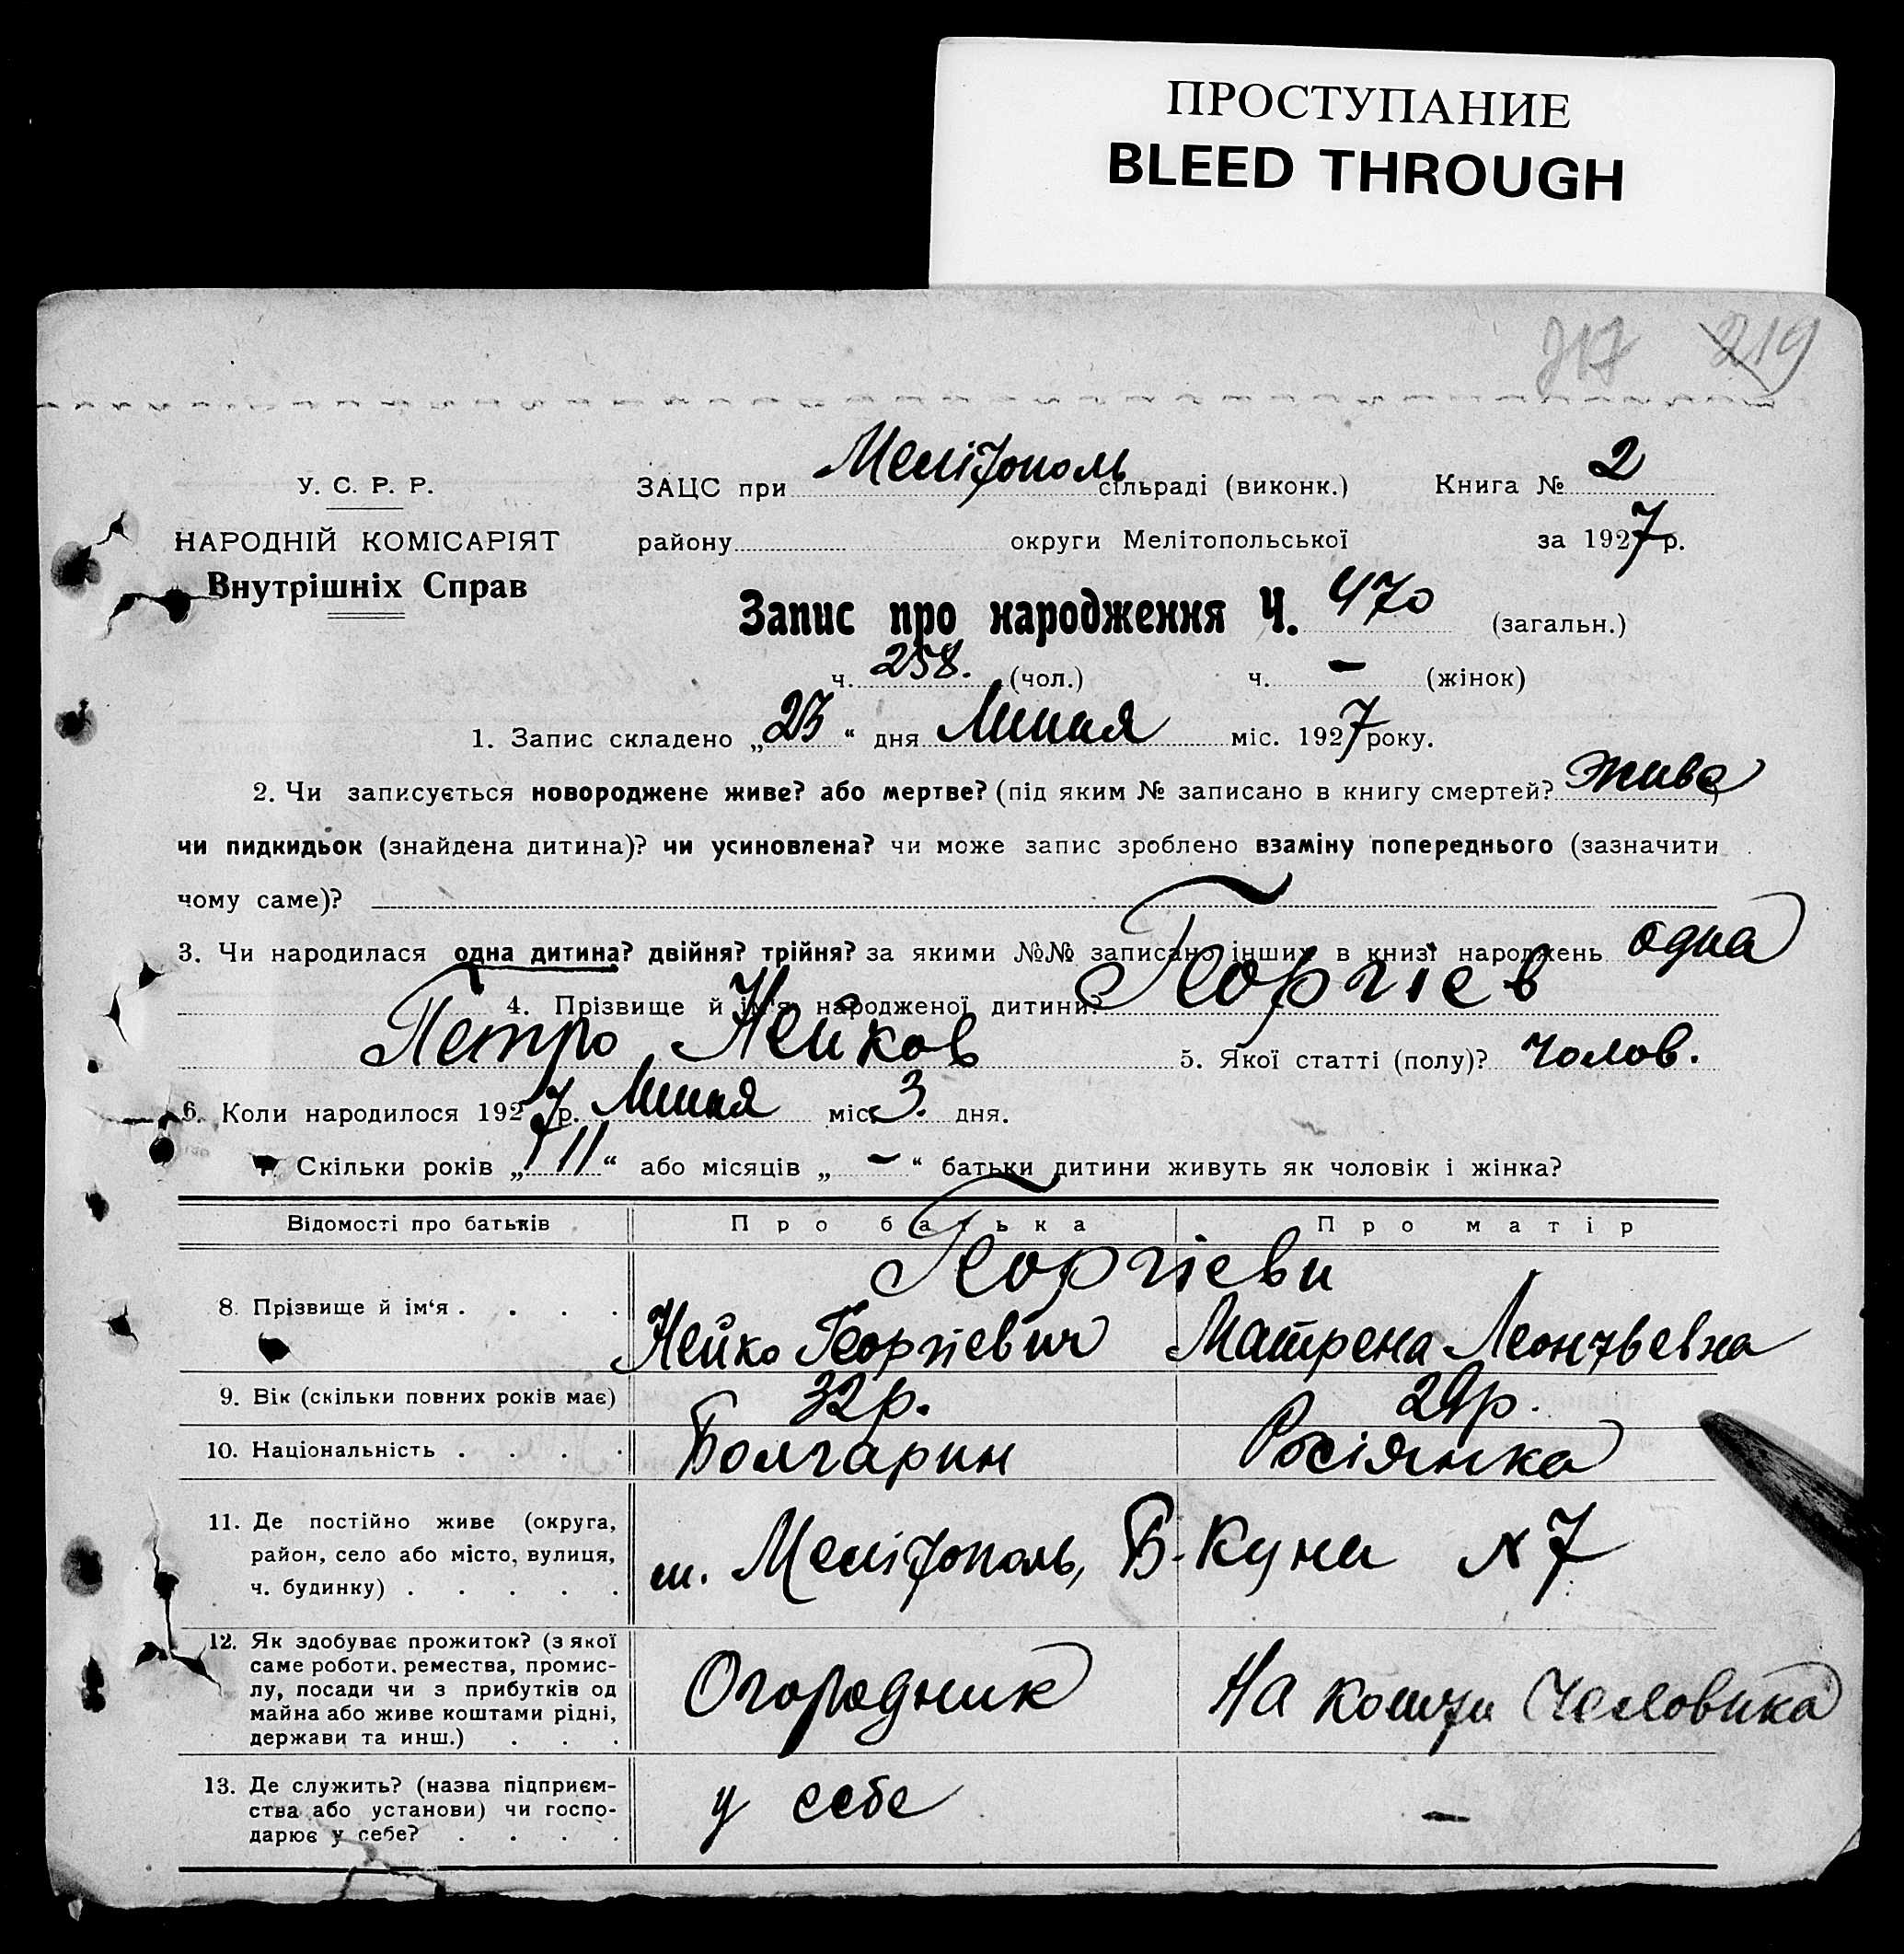 ПРОСТУПАНИЕ
BLEED THROUGH
217 219
У. С. Р. Р.
НАРОДНІЙ КОМІСАРІЯТ
Внутрішніх Справ
ЗАЦС при Мелітополь сільраді (виконк.) Книга № 2
району округи Мелітопольської за 1927 р.
Запис про народження Ч. 470 (загальн.)
ч. 258. (чол.) ч. — (жінок)
1. Запис складено „23“ дня Липня міс. 1927 року.
2. Чи записується новороджене живе? або мертве? (під яким № записано в книгу смертей? живе)
чи пидкидьок (знайдена дитина)? чи усиновлена? чи може запис зроблено взаміну попереднього (зазначити
чому саме)?
3. Чи народилася одна дитина? двійня? трійня? за якими №№ записано інших в книзі народжень одна
4. Прізвище й ім'я народженої дитини? Георгієв
Петро Нейков 5. Якої статті (полу)? чолов.
6. Коли народилося 1927 р. Липня міс. 3. дня.
7. Скільки років „11“ або місяців „—“ батьки дитини живуть як чоловік і жінка?
Відомості про батьків Про батька Про матір
Георгієви
8. Прізвище й ім‘я . . . . Нейко Георгієвич Матрена Леонтьевна
9. Вік (скільки повних років має) 32 р. 29 р.
10. Національність . . . . Болгарин Росіянка
11. Де постійно живе (округа,
район, село або місто, вулиця,
ч. будинку) . . . . .
м. Мелітополь, Б. Куна № 7
12. Як здобуває прожиток? (з якої
саме роботи. ремества, промис-
лу, посади чи з прибутків од
майна або живе коштами рідні,
держави та инш.) . . .
Огородник На кошти Человика
13. Де служить? (назва підприєм-
ства або установи) чи госпо-
дарює у себе? . . . .
у себе —